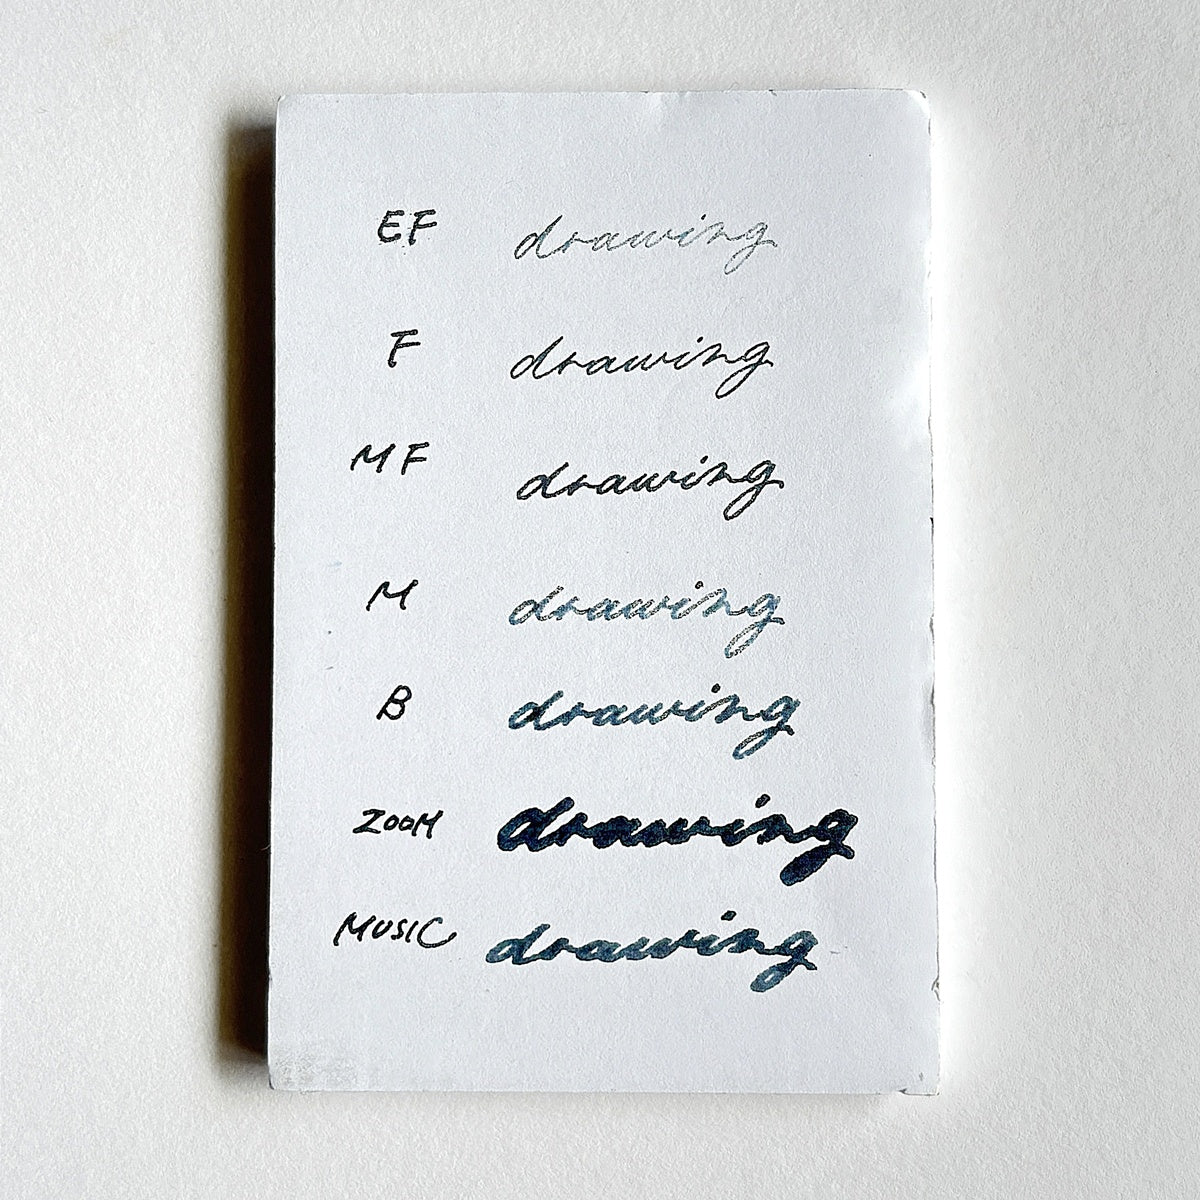 EF drawing
F drawing
MF drawing
M drawing
B drawing
ZOOM drawing
MUSIC drawing